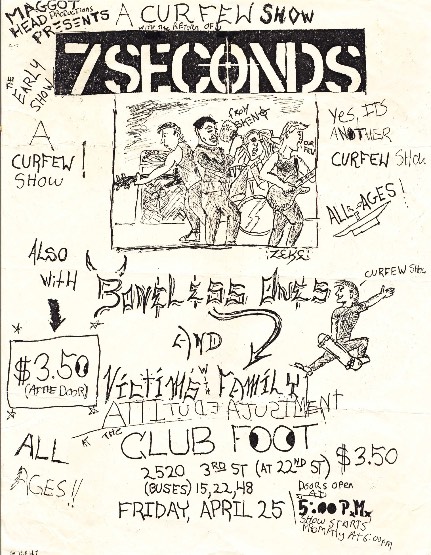 MAGGOT
HEAD PRODUCTIONS
PRESENTS
A CURFEW SHOW
with the RETURN OF
7 SECONDS
THE
EARLY
SHOW
A
CURFEW
SHOW!
TROY
ZEKE
Yes, ITS
ANOTHER
CURFEW SHOW
ALL-AGES!
ALSO
WITH
BONELESS ONES
CURFEW SHOW
AND
$3.50
(AT THE DOOR)
VICTIMS FAMILY
ATTITUDE AJUSTMENT
THE
CLUB FOOT
ALL
AGES!!
2520 3RD ST (AT 22ND ST)
$3.50
(BUSES) 15, 22, 48
FRIDAY, APRIL 25
DOORS OPEN
5:00 P.M.
SHOW STARTS
PROMPTLY AT 6:00PM